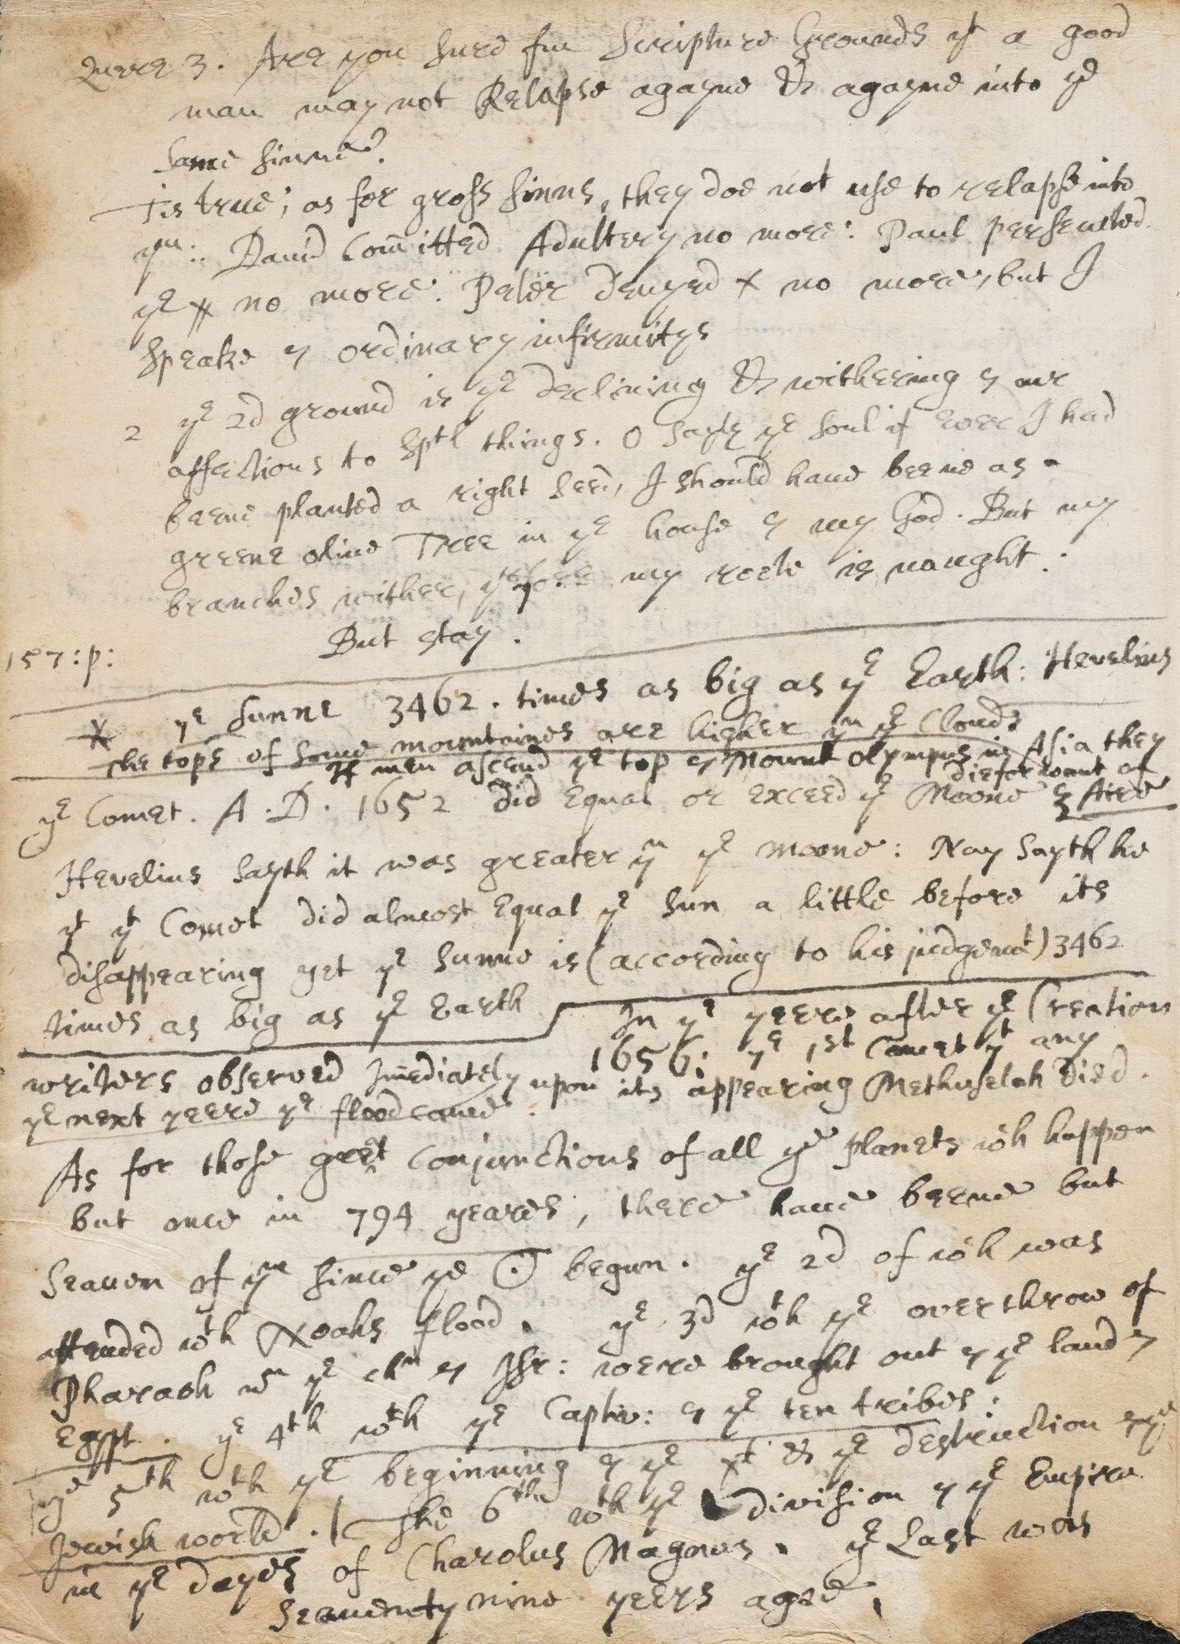 Quere 3. Are you sure frm Scripture Grounds yt a good
man may not Relapse agayne & agayne into ye
same sinne?
Tis true; as for gross sinns, they doe not use to relapse into
ym:. Dauid Com̄itted Adultery no more: Paul persecuted
ye no more: Peter denyed X no more, but I
speake of ordinary infirmitys
2 ye 2d ground is ye declining & withering of our
affections to Sptl things. O sayth ye soul if ever I had
beene planted a right seed, I should haue beene as a
greene oliue Tree in ye house of my God. But my
branches wither, yrfore my roote is naught:
But stay.
157:p:
X ye sunne 3462. times as big as ye Earth: Hevelius
The tops of some mountaines are higher yn ye Clouds
If men ascend ye top of Mount Olympus in Asia they
die for want of
ye Comet. A.D. 1652 did Equal or exceed ye Moone & Aire
Hevelius sayth it was greater yn ye moone: Nay sayth he
yt yt Comet did almost Equal ye sun a little before its
disappearing yet ye sunne is (according to his judgemt) 3462
times as big as ye Earth
In ye yeere after ye Creation
1656: ye 1st Comet yt any
writers observed Im̄ediately upon its appearing Methuselah died.
ye next yeere ye flood came.
As for those great Conjunctions of all ye planets wch happen
but once in 794 yeares, there haue beene but
Seauen of ym since ye ☉ begun. ye 2d of wch was
attended wth Noahs flood. ye 3d wth ye overthrow of
Pharaoh wn ye chn of Isr: were brought out of ye land of
Egypt. ye 4th wth ye Captiv: of ye ten tribes:
ye 5th wth ye beginning of ye & ye destruction of ye
Jewish world. The 6th wth ye division of ye Empire
in ye dayes of Charolus Magnus. ye Last was
Seaventy nine yeers agoe.